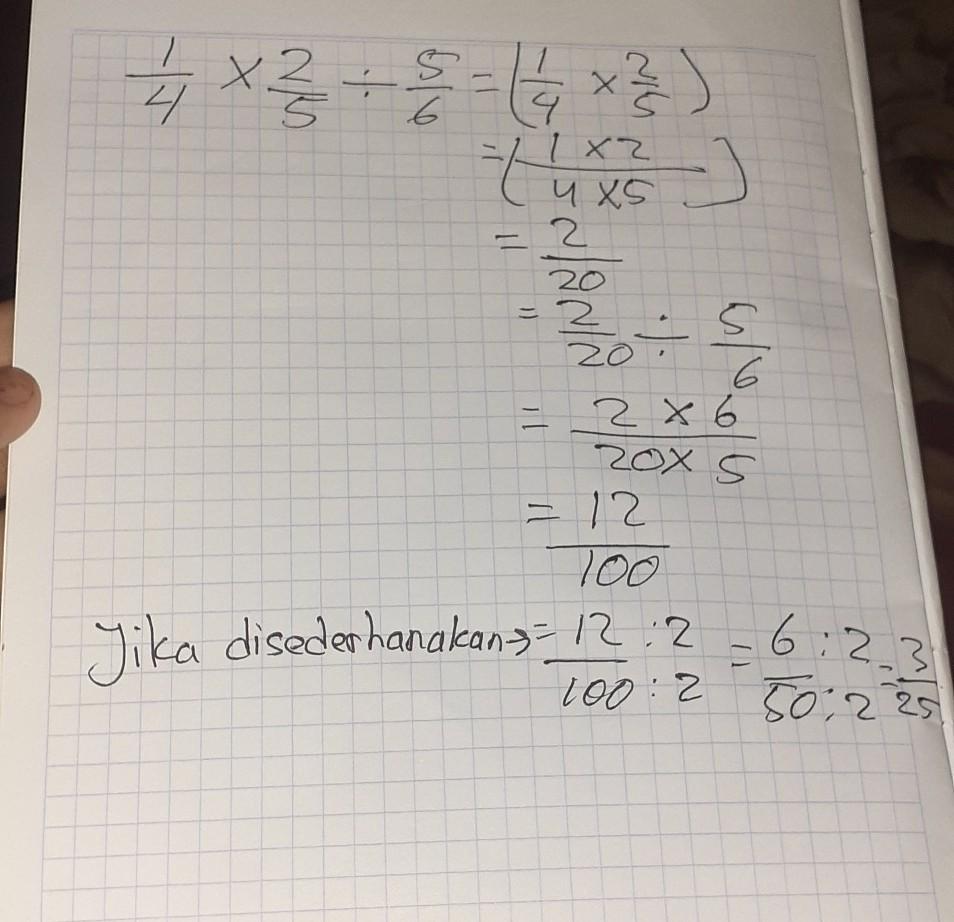 1/4 × 2/5 ÷ 5/6 = (1/4 × 2/5)
= (1 × 2 / 4 × 5)
= 2/20
= 2/20 ÷ 5/6
= 2 × 6 / 20 × 5
= 12/100
Jika disederhanakan → = 12 : 2 / 100 : 2 = 6 : 2 / 50 : 2 = 3/25